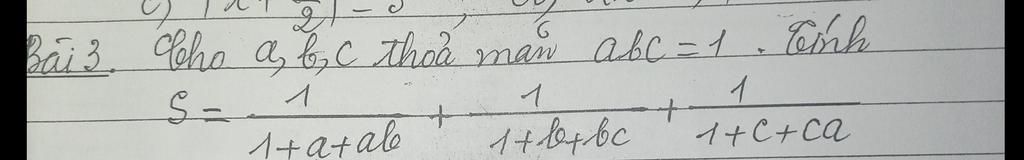 Bài 3. Cho a, b, c thoả mãn abc = 1. Tính
S = \frac{1}{1+a+ab} + \frac{1}{1+b+bc} + \frac{1}{1+c+ca}